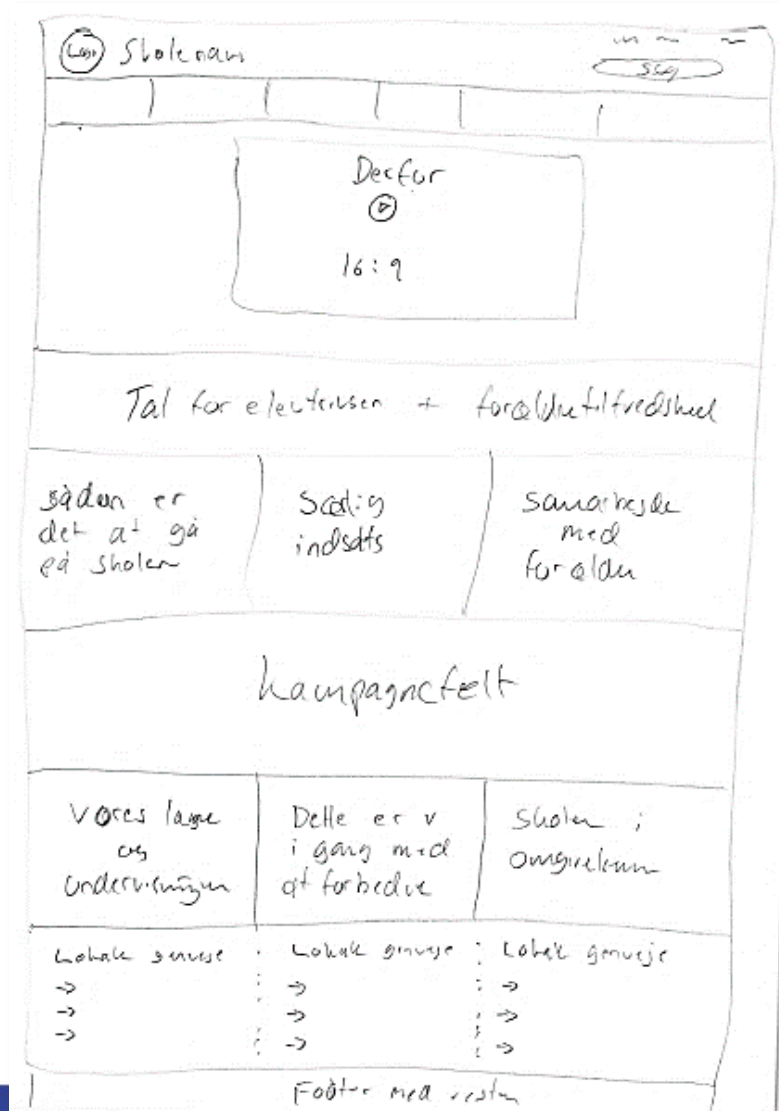 Logo Skolenavn
Søg
Derfor
16:9
Tal for elevtrivsen + forældretilfredshed
sådan er
det at gå
på skolen
Særlig
indsats
samarbejde
med
forældre
kampagnefelt
Vores lærere
og
undervisningen
Dette er v
i gang med
at forbedre
Skolen i
omgivelserne
Lokale genveje
Lokale genveje
Lokale genveje
Footer med resten